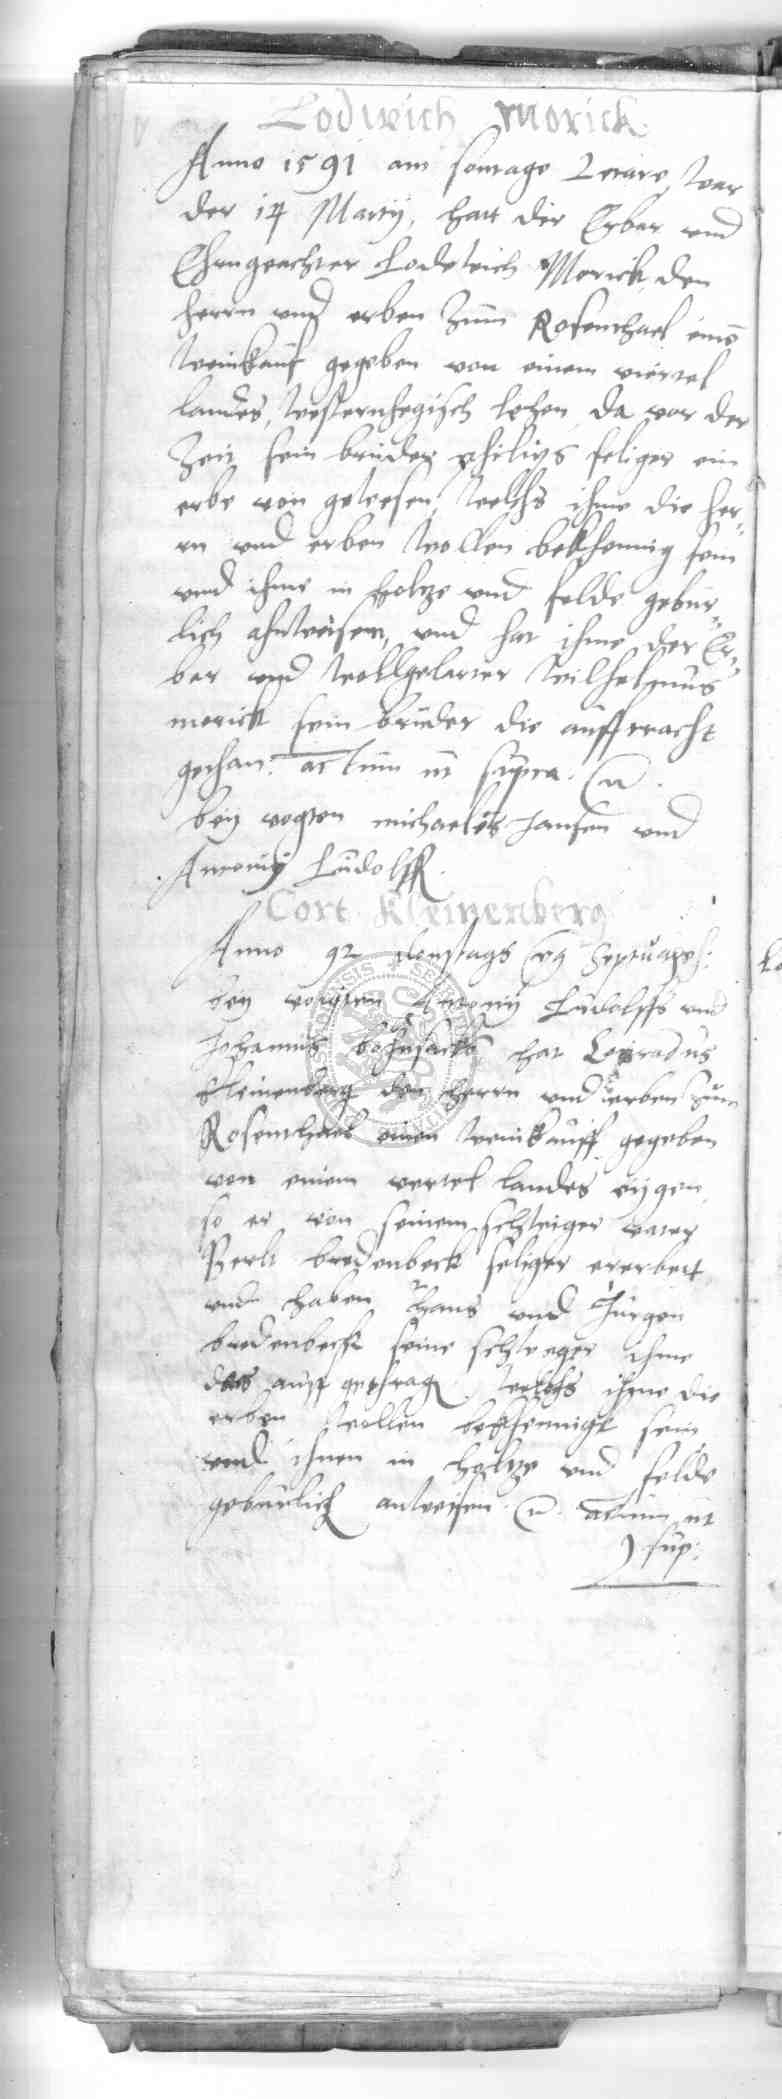 Lodwich Morick.
Anno 1591 am sontage Letare, war
der 14 Martij, hatt der Erbar und
Ehrngeachter Lodewich Morick, den
herrn und erben zum Rosenthael eins
weinkauf gegeben von einem viertel
landes, westernhegisch lehen, da vor der
zeit sein bruder philips seliger ein
erbe von gewesen, welchs ihme die her-
rn und erben wollen bekhennig sein
und ihme in holtze und felde gebur-
lich ahnweisen, und hat ihme der Er-
bar und wollgelarter Wilhelmus
morick sein bruder die aufftracht
gethan. actum ut supra.
bey vogten michaelis Jansen und
Antonij Ludolff.
Cort Kleinenberg
Anno 92 Septuages:
bey voigten Antonij Ludolffs und
Johannis hat Conradus
Kleinenberg den herrn und erben zum
Rosenthael einen weinkauff gegeben
von einem vertel landes eygen,
so er von seinem schweiger vater
bredenbeck seliger ererbett
und haben Hans und Jurgen
bredenbeck seine schweger ihme
das auff getragen welchs ihme die
erben wollen bekhennigt sein
und ihnen in holtze und felde
geburlich anweisen. actum ut
sup: